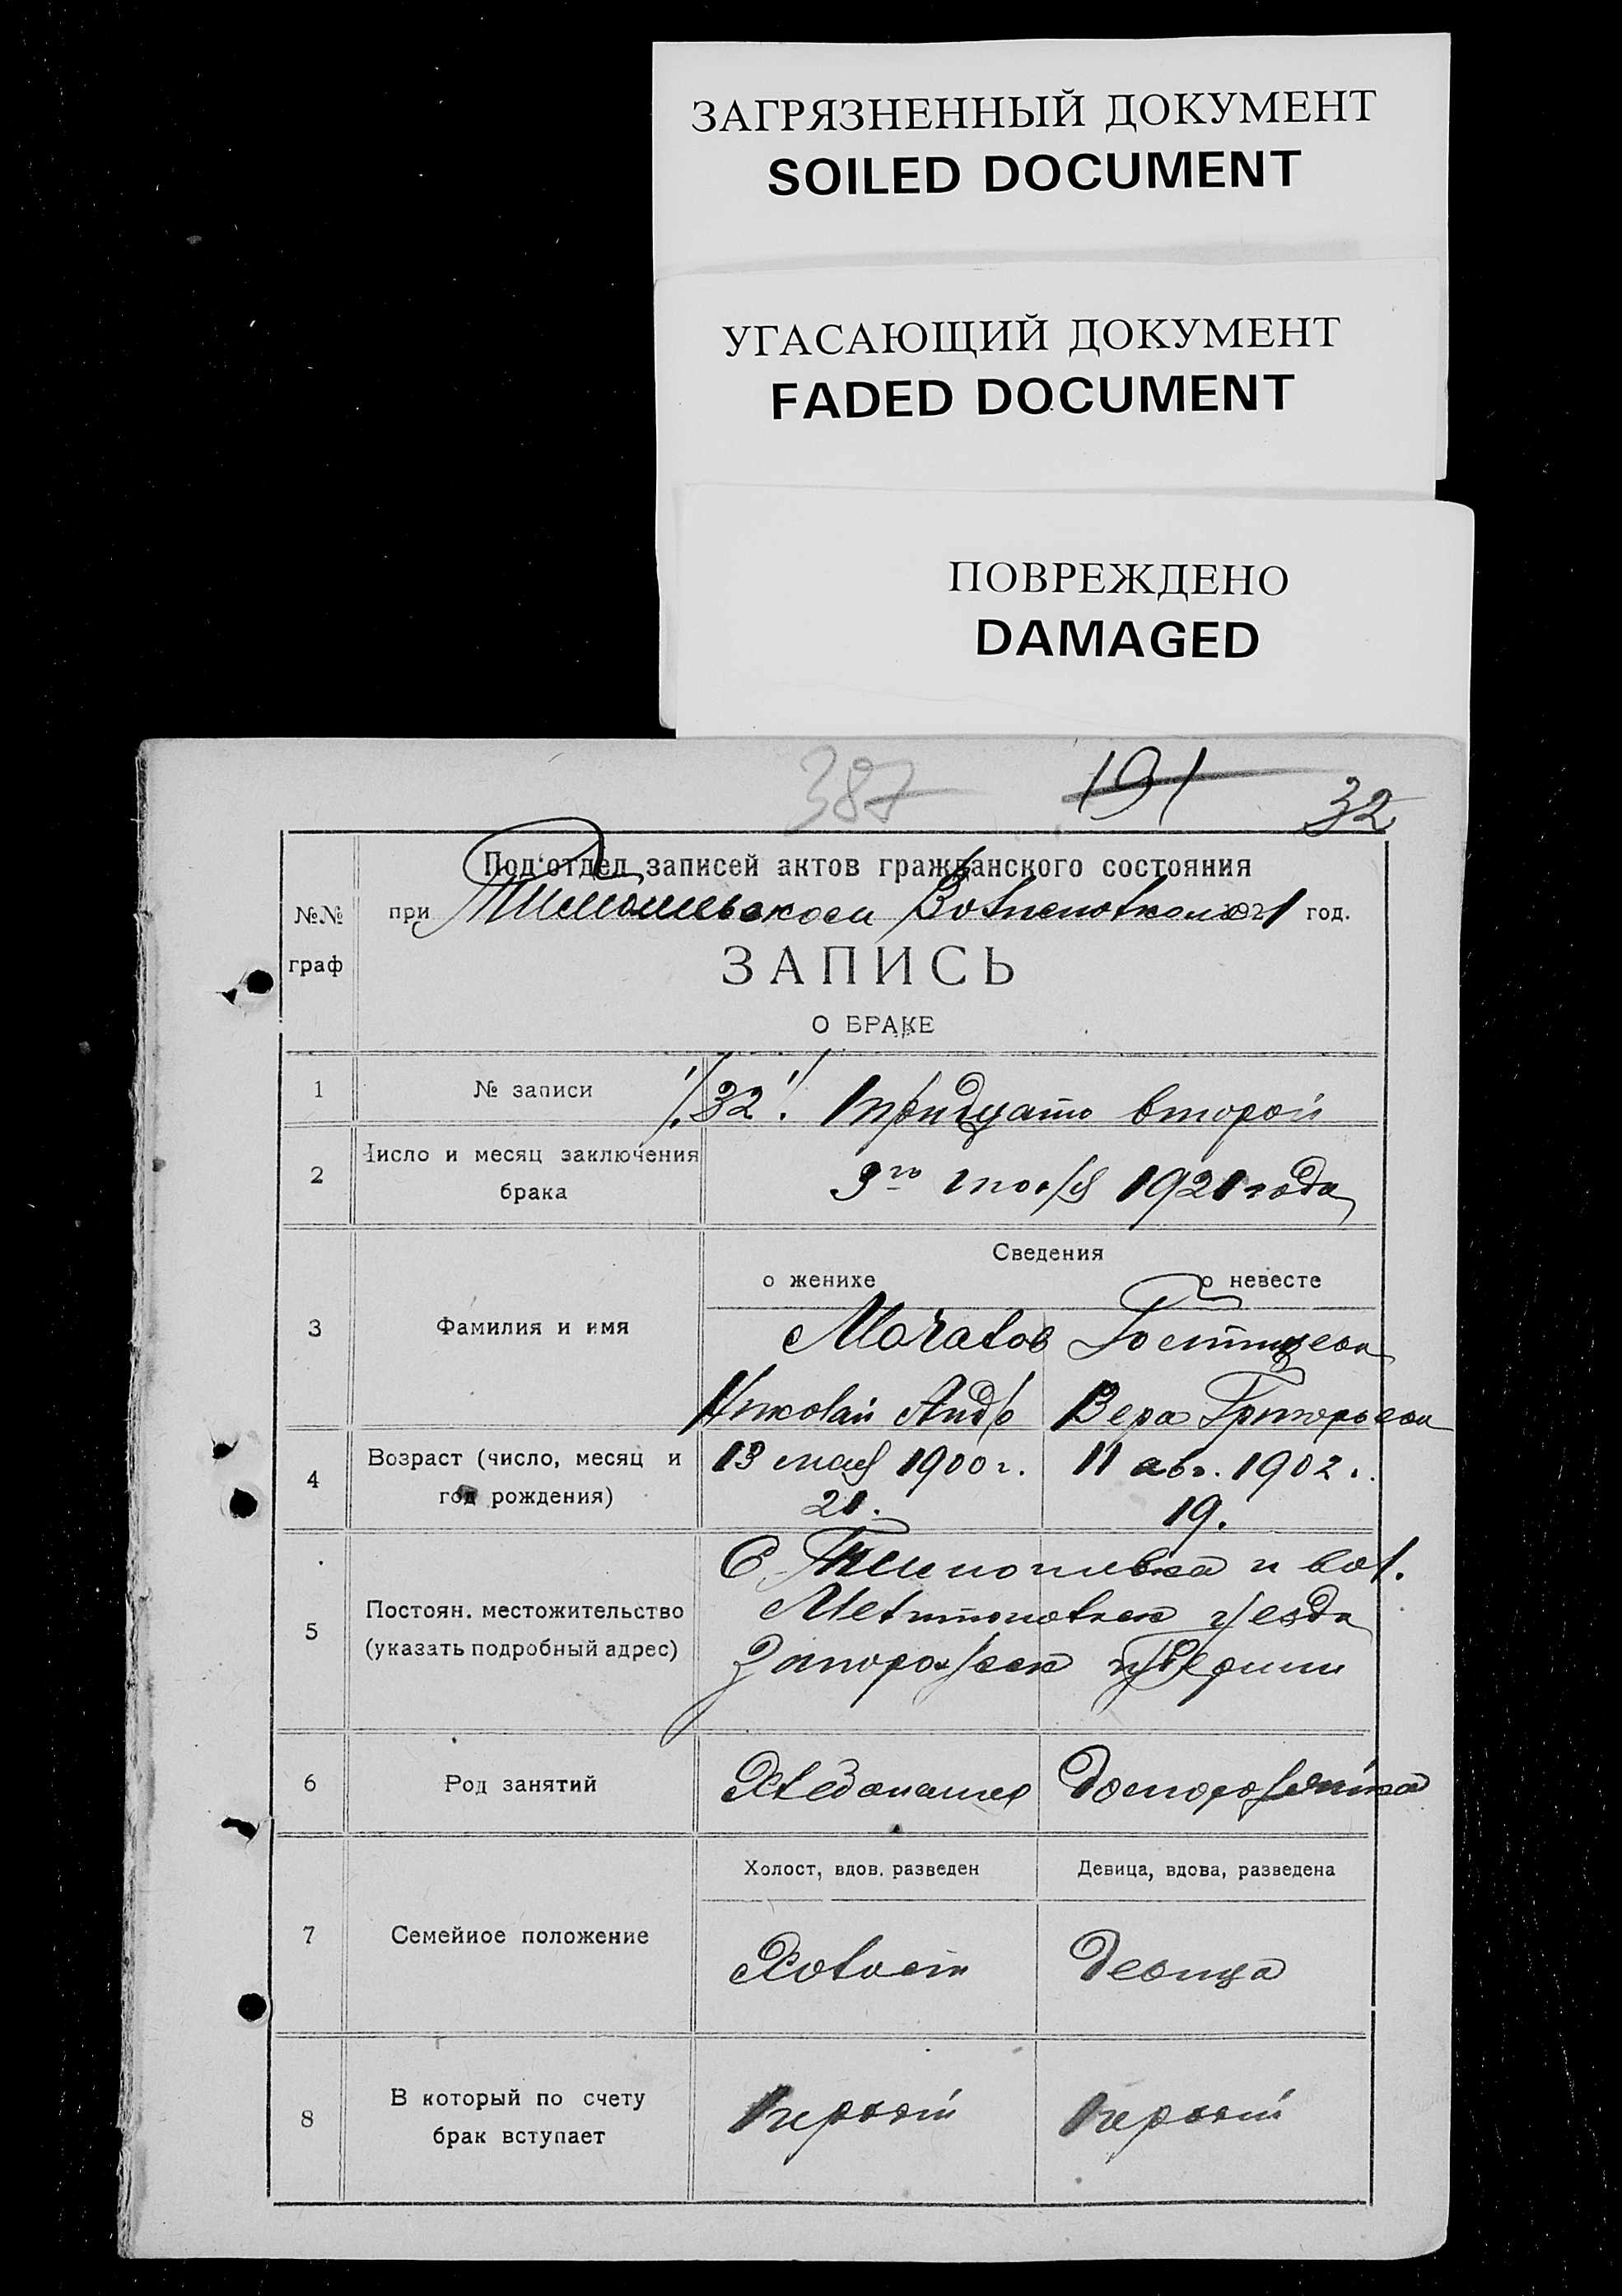 ЗАГРЯЗНЕННЫЙ ДОКУМЕНТ
SOILED DOCUMENT
УГАСАЮЩИЙ ДОКУМЕНТ
FADED DOCUMENT
ПОВРЕЖДЕНО
DAMAGED
387 191 32
Под'отдел записей актов гражданского состояния
№№ граф
при Волисполкоме 1921 год.
ЗАПИСЬ
О БРАКЕ
1 № записи 32 Тридцать второй
2 Число и месяц заключения
брака
3го 1921 года
Сведения
о женихе о невесте
3 Фамилия и имя
Мочалов
Николай Андр Вера Григорьевн
4 Возраст (число, месяц и
год рождения)
13 мая 1900 г. 11 авг. 1902 г.
21. 19.
5 Постоян. местожительство
(указать подробный адрес)
С. Тимошевка и вол.
Мелитопольск уезда
Запорожск губернии
6 Род занятий Хлебопашец Домохозяйка
Холост, вдов. разведен Девица, вдова, разведена
7 Семейное положение Холост Девица
8 В который по счету
брак вступает
Первый Первый